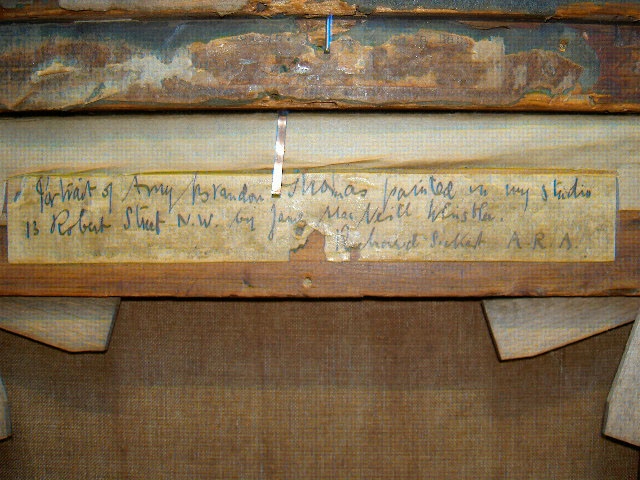 Portrait of Amy Brandon Thomas painted in my studio
13 Robert Street N.W. by James MacNeill Whistler.
Richard Sickert A.R.A.